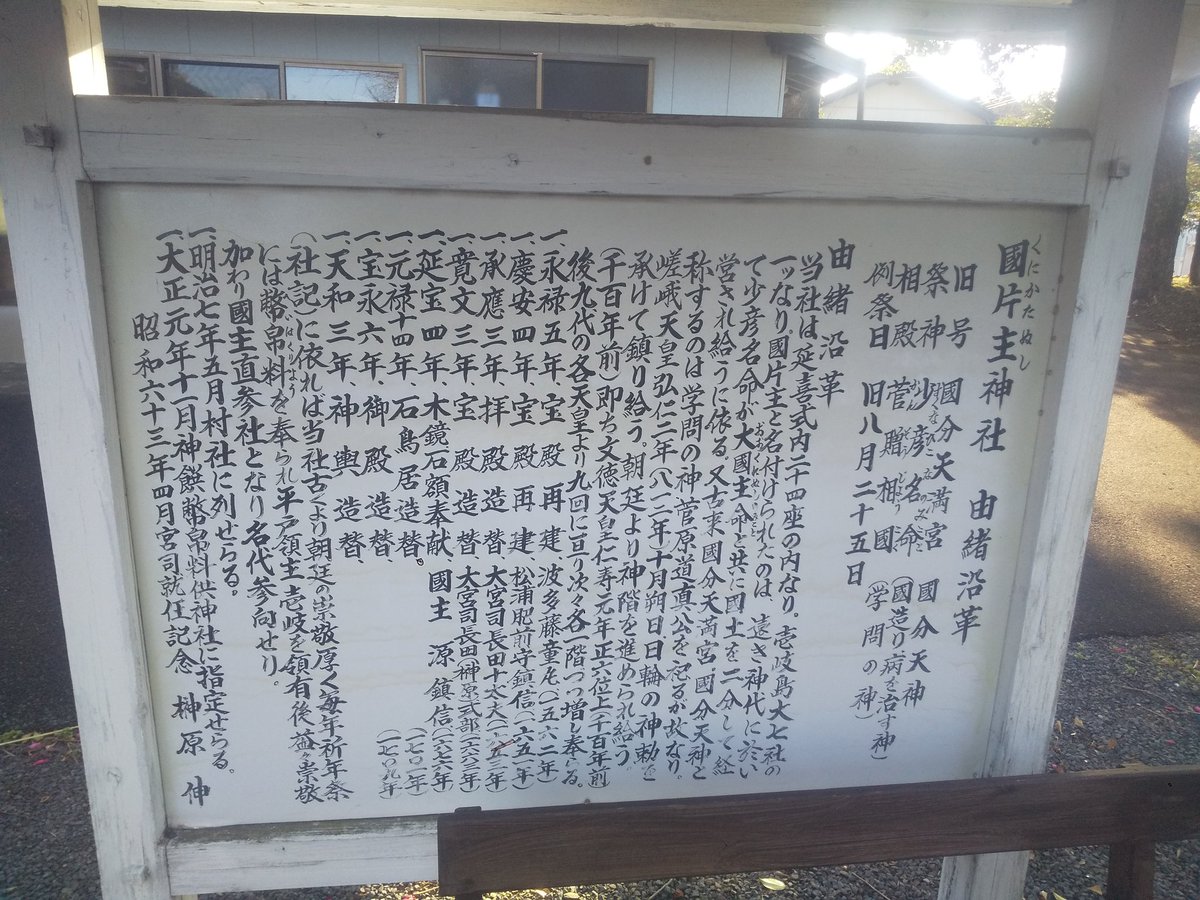 國片主神社　由緒沿革
くにかたぬし
旧号　國分天満宮　國分天神
祭神　少彦名命　(國造り病を治す神)
すくなひこなのみこと
相殿　菅贈相國　(学問の神)
かんぞうしょうこく
例祭日　旧八月二十五日
由緒沿革
当社は延喜式内二十四座の内なり。壱岐島大七社の
一ッなり。國片主と名付けられたのは、遠き神代に於い
て少彦名命が大國主命と共に國土を二分して経
おおくにぬしのみこと
営され給うに依る。又古来國分天満宮國分天神と
称するのは学問の神菅原道真公を祀るが故なり。
嵯峨天皇弘仁二年(八一二年十月朔日日輪の神勅を
承けて鎮り給う。朝廷より神階を進められ給う
(千百年前)即ち文徳天皇仁寿元年正六位上(千百年前
後九代の各天皇より九回に亘り次々各一階づつ増し奉る。
一、永禄五年、宝殿再建　波多藤童丸(一五六二年)
一、慶安四年、宝殿再建　松浦肥前守鎮信(一六五一年)
一、承應三年、拝殿造替　大宮司長田十太夫(一六五三年)
一、寛文三年、宝殿造替、大宮司長田榊原式部(一六六三年)
一、延宝四年、木鏡石額奉献、國主　源鎮信(一六七六年)
一、元禄十四年、石鳥居造替、(一七〇一年)
一、宝永六年、御殿造替、(一七〇九年)
一、天和三年、神輿造替、
(社記)に依れば当社古より朝廷の崇敬厚く毎年祈年祭
には幣帛料を奉られ平戸領主壱岐を領有後益々崇敬
はくりょう
加わり國主直参社となり名代参向せり。
一、明治七年五月村社に列せらる。
一、大正元年十一月神饌幣帛料供神社に指定せらる。
昭和六十三年四月宮司就任記念　榊原　伸